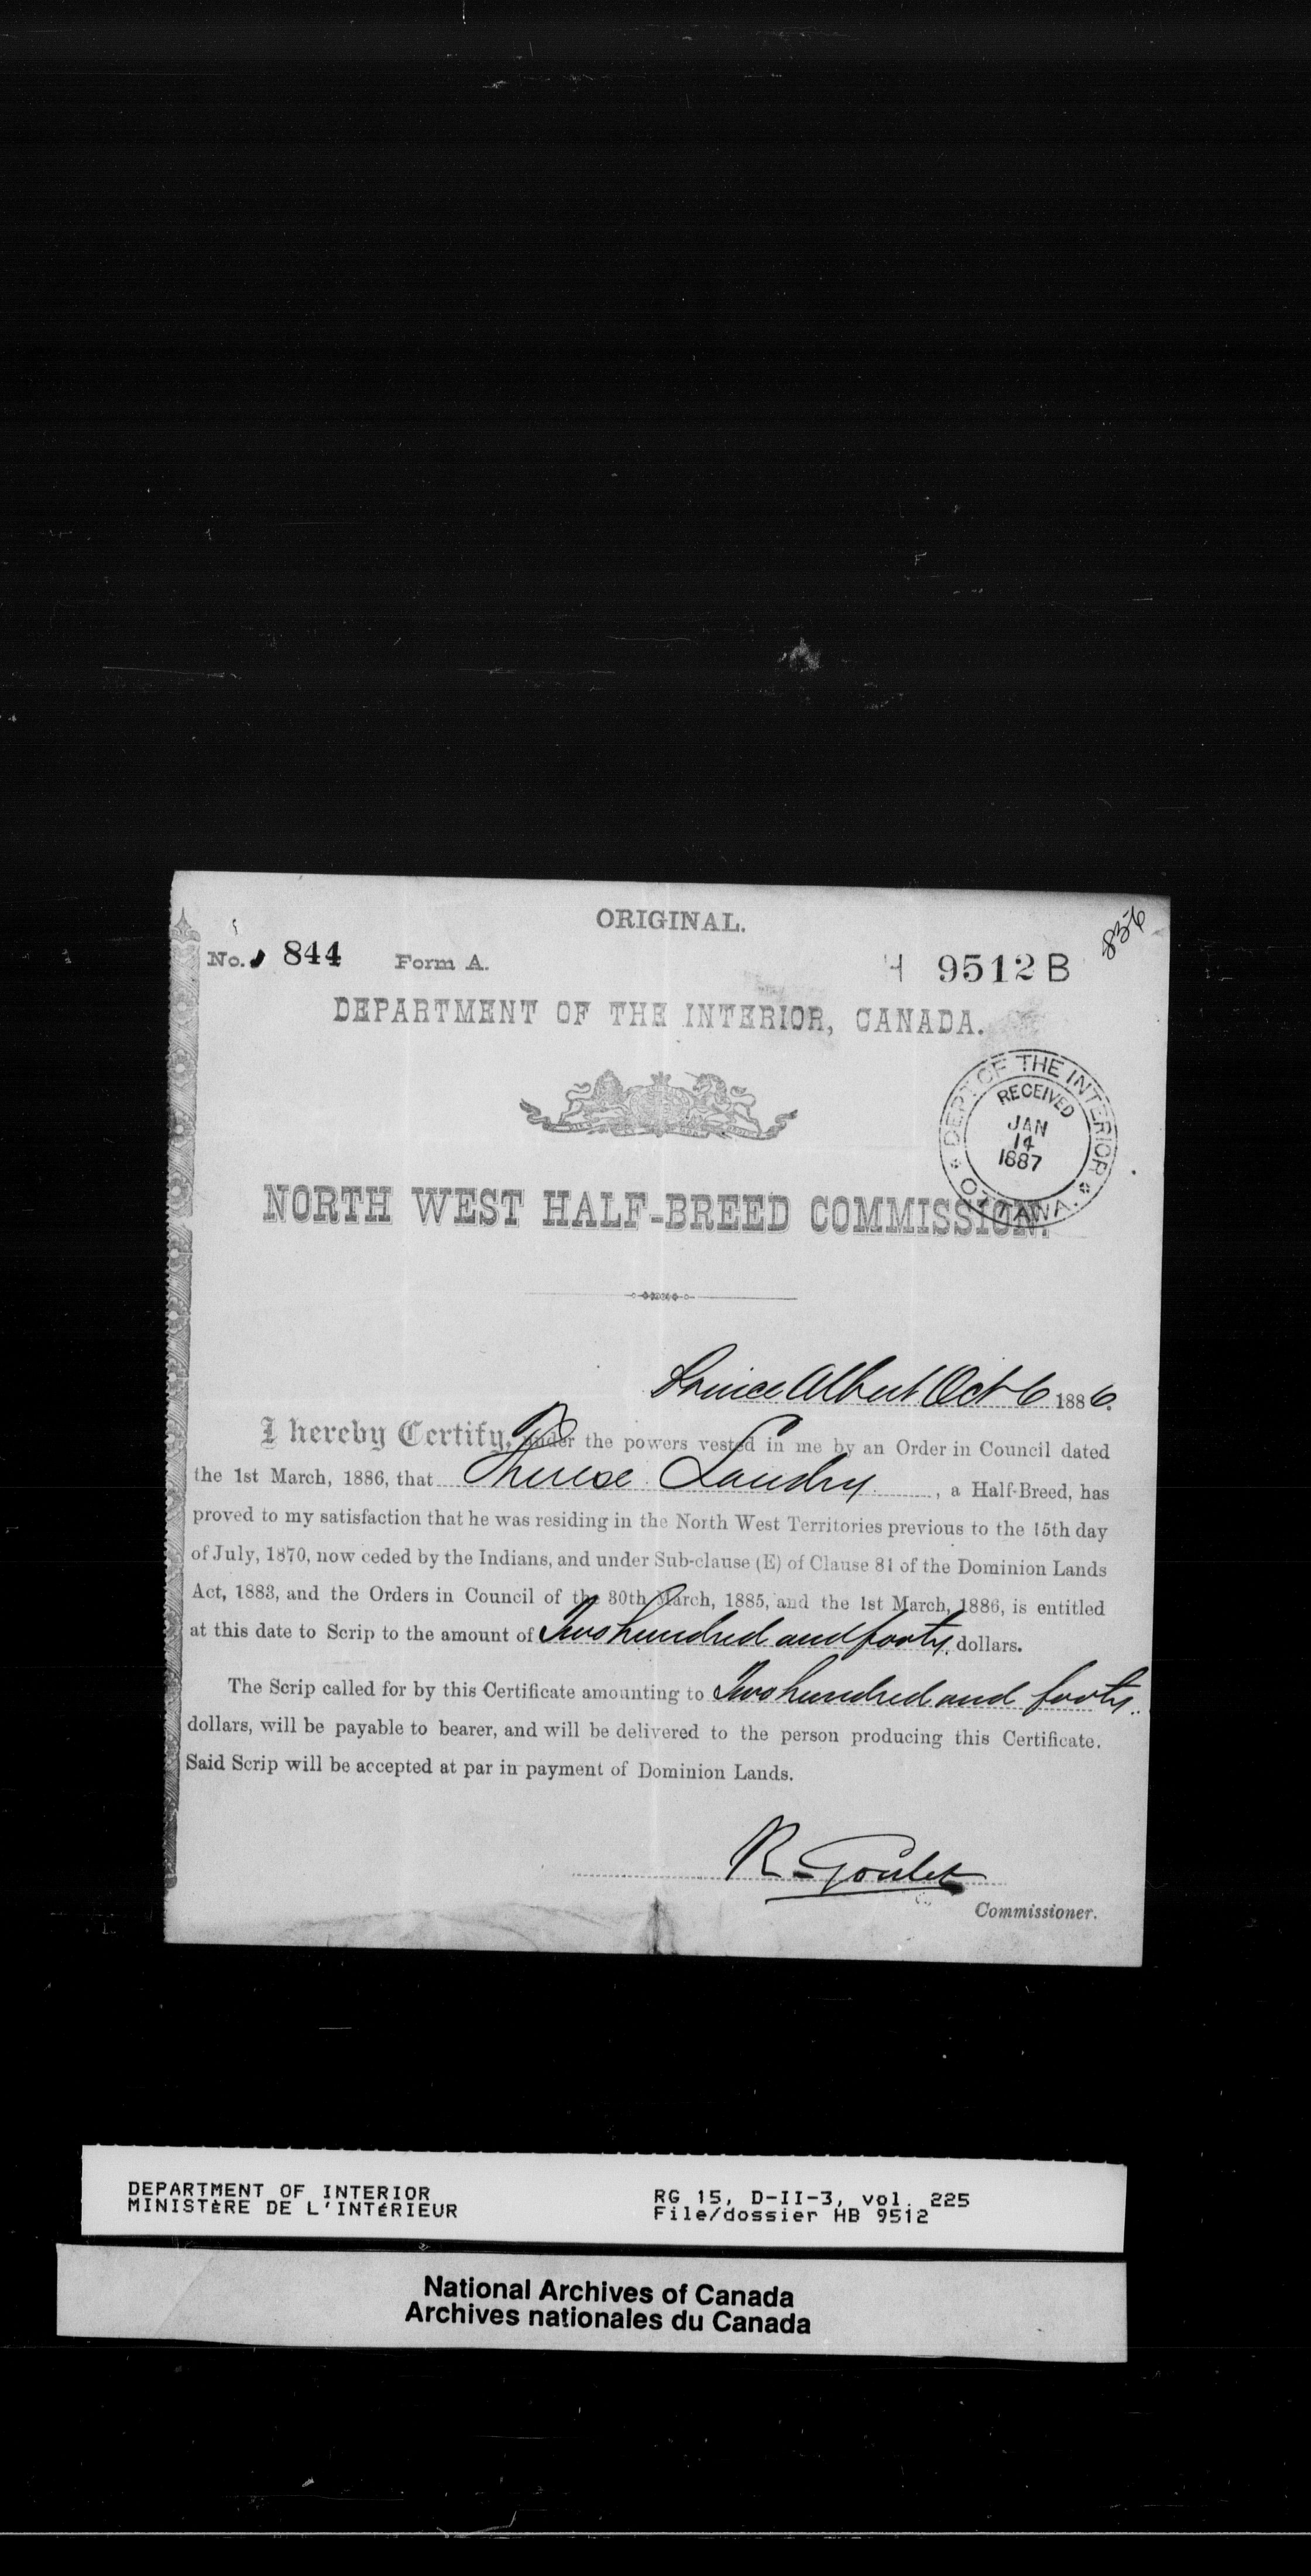 ORIGINAL.
836
No. 844 Form A.
H 9512 B
DEPARTMENT OF THE INTERIOR, CANADA.
DEPT OF THE INTERIOR
RECEIVED
JAN
14
1887
OTTAWA.
NORTH WEST HALF-BREED COMMISSION.
Prince Albert Oct 6 1886.
I hereby Certify, under the powers vested in me by an Order in Council dated
the 1st March, 1886, that Therese Landry, a Half-Breed, has
proved to my satisfaction that he was residing in the North West Territories previous to the 15th day
of July, 1870, now ceded by the Indians, and under Sub-clause (E) of Clause 81 of the Dominion Lands
Act, 1883, and the Orders in Council of the 30th March, 1885, and the 1st March, 1886, is entitled
at this date to Scrip to the amount of Two hundred and forty dollars.
The Scrip called for by this Certificate amounting to Two hundred and forty
dollars, will be payable to bearer, and will be delivered to the person producing this Certificate.
Said Scrip will be accepted at par in payment of Dominion Lands.
R. Goulet
Commissioner.
DEPARTMENT OF INTERIOR
MINISTÈRE DE L'INTÉRIEUR
RG 15, D-II-3, vol. 225
File/dossier HB 9512
National Archives of Canada
Archives nationales du Canada